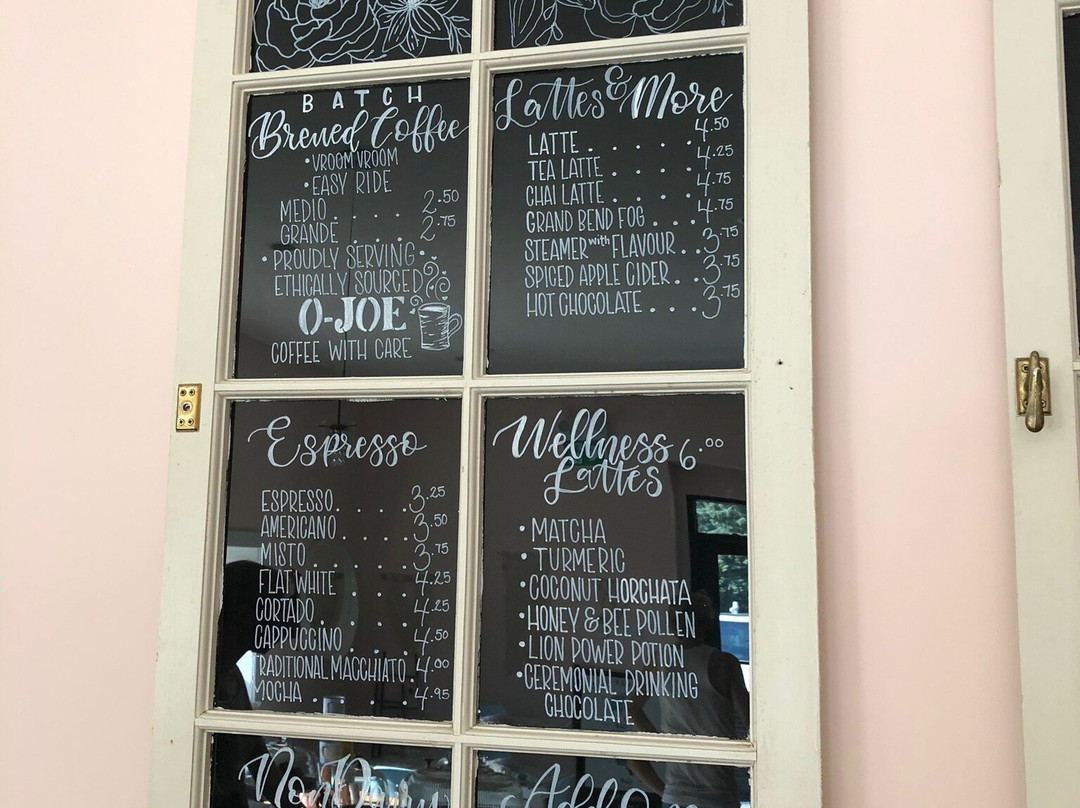 BATCH
Brewed Coffee
• VROOM VROOM
• EASY RIDE
MEDIO . . . . 2.50
GRANDE . . . . 2.75
• PROUDLY SERVING •
ETHICALLY SOURCED
O-JOE
COFFEE WITH CARE
Lattes & More
LATTE . . . . . 4.50
TEA LATTE . . . . 4.25
CHAI LATTE . . . . 4.75
GRAND BEND FOG . . . 4.75
STEAMER with FLAVOUR . . 3.75
SPICED APPLE CIDER . . 3.75
HOT CHOCOLATE . . . 3.75
Espresso
ESPRESSO . . . . 3.25
AMERICANO . . . . 3.50
MISTO . . . . . 3.75
FLAT WHITE . . . . 4.25
CORTADO . . . . 4.25
CAPPUCCINO . . . 4.50
TRADITIONAL MACCHIATO . 4.00
MOCHA . . . . . 4.95
Wellness 6.00
Lattes
• MATCHA
• TURMERIC
• COCONUT HORCHATA
• HONEY & BEE POLLEN
• LION POWER POTION
• CEREMONIAL DRINKING
CHOCOLATE
Non Dairy